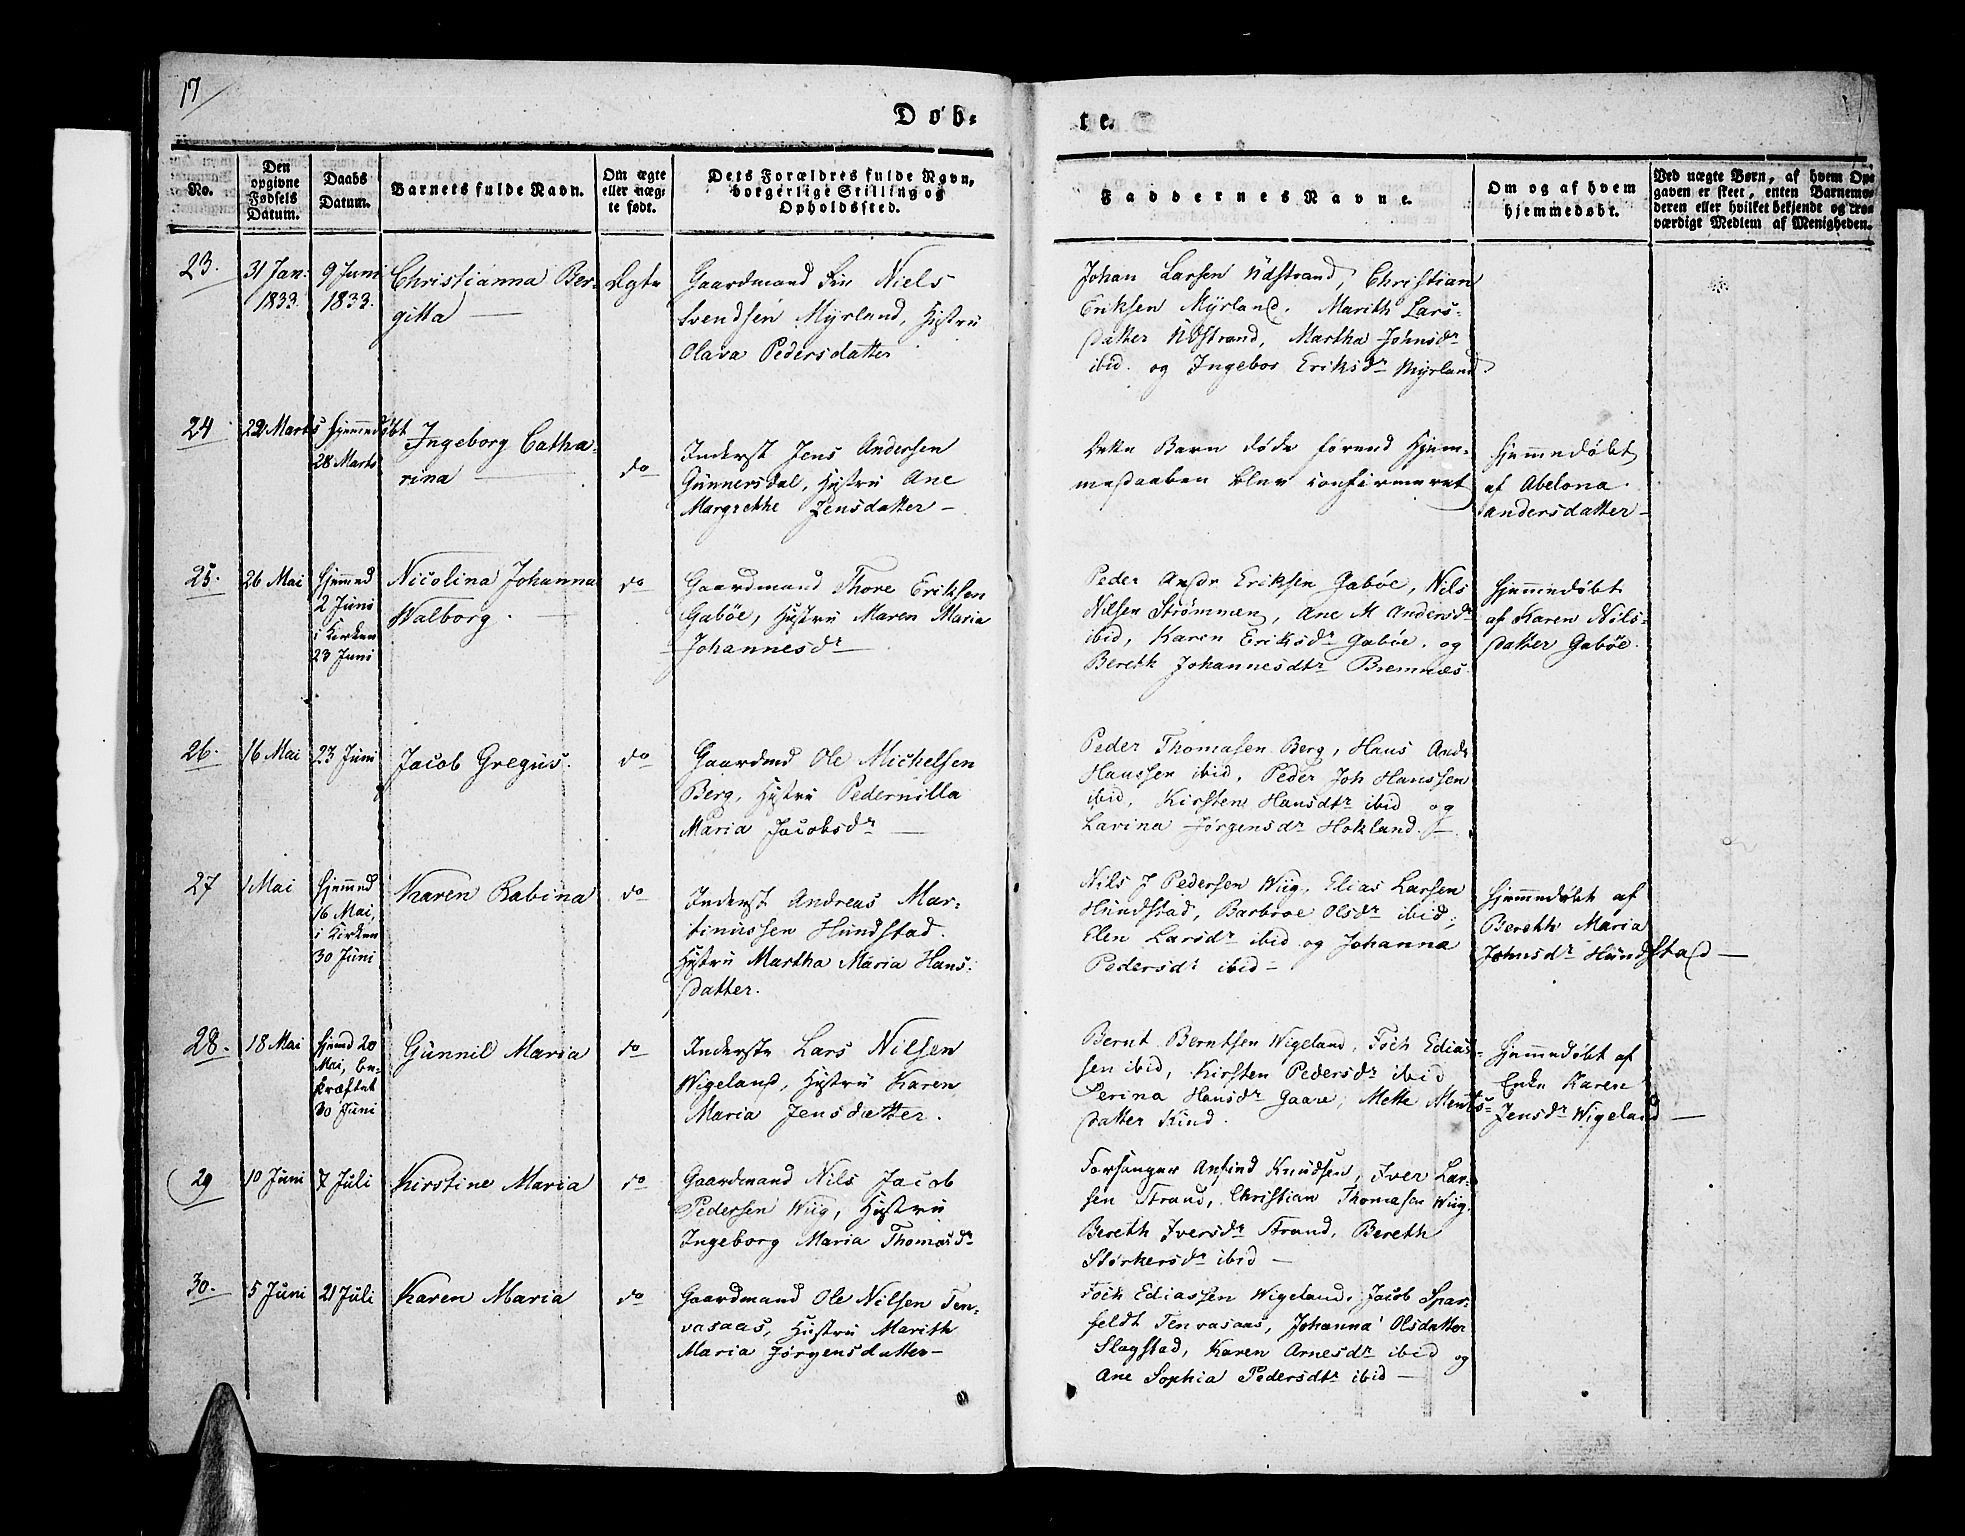 17
Døb-
te.
No.
Den opgivne Fødsels Datum.
Daabs Datum.
Barnets fulde Navn.
Om ægte eller uægte født.
Dets Forældres fulde Navn, borgerlige Stilling og Opholdssted.
Faddernes Navne.
Om og af hvem hjemmedøbt.
Ved uægte Børn, af hvem Opgaven er skeet, enten Barnemoderen eller hvilket bekjendt og troværdigt Medlem af Menigheden.
23.
31 Jan:
1833.
9 Juni
1833.
Christianna Ber-
gitta
Ægte
Gaardmand Niels
Svendsen Myrland, Hustru
Olava Pedersdatter
Johan Larsen Udstrand, Christian
Eriksen Myrland. Marith Lars-
datter Udstrand, Martha Johnsdr
ibid. og Ingebor Eriksdr Myrland
24
22 Marts
Hjemmedøbt
28 Marts
Ingeborg Catha-
rina
do
Inderst Jens Andersen
Gunnersdal, Hustru Ane
Margrethe Jensdatter
Dette Barn døde forend Hjem-
medaaben blev confirmeret
Hjemmedøbt
af Abelona
Andersdatter
25.
26 Mai
Hjemmed
2 Juni
i Kirken
23 Juni
Nicolina Johanna
Walborg
do
Gaardmand Thore Eriksen
Gabøe, Hustru Maren Maria
Johannesdr
Peder Andr Eriksen Gabøe, Nils
Nilsen Strømmen, Ane M Andersdr
ibid, Karen Eriksdr Gabøe. og
Bereth Johannesdtr Bremnæs
Hjemmedøbt
af Karen Nils-
datter Gabøe.
26.
16 Mai
23 Juni
Jacob Gregus.
do
Gaardmd Ole Michelsen
Berg, Hustru Pedernilla
Maria Jacobsdr
Peder Thomasen Berg, Hans Andr
Hanssen ibid, Peder Joh Hanssen
ibid, Kirsten Hansdtr ibid og
Lavina Jørgensdr Hokland.
27
1 Mai
Hjemmed
16 Mai,
i Kirken
30 Juni
Karen Rabina
do
Inderst Andreas Mar-
tinussen Hundstad.
Hustru Martha Maria Hans-
datter.
Nils J Pedersen Wiig, Elias Larsen
Hundstad, Barbroe Olsdr ibid,
Elen Larsdr ibid og Johanna
Pedersdr ibid
Hjemmedøbt af
Bereth Maria
Johnsdr Hundstad
28.
18 Mai
Hjemd 20
Mai, be-
kræftet
30 Juni
Gunnil Maria
do
Inderste Lars Nilsen
Wigeland, Hustru Karen
Maria Jensdatter.
Bernt Berntsen Wigeland, Foch Edias-
sen ibid, Kirsten Pedersdr ibid
Serina Hansdr Gaare, Mette Ments-
datter Kind.
Hjemmedøbt af
Enke Karen
Jensdr Wigeland
29
10 Juni
7 Juli
Kirstine Maria
do
Gaardmand Nils Jacob
Pedersen Wiig, Hustru
Ingeborg Maria Thomasdr
Forsanger Anfind Knudsen, Iver Lar-
sen Strand, Christian Thomasen Wiig
Bereth Iversdr Strand, Bereth
Størkersdr ibid
30.
5 Juni
21 Juli
Karen Maria
do
Gaardmand Ole Nilsen Ten-
vasaas, Hustru Marith
Maria Jørgensdatter
Foch Ediassen Wigeland, Jacob Spar-
feldt Tenvasaas, Johanna Olsdatter
Slagstad, Karen Arnesdr ibid og
Ane Sophia Pedersdtr ibid